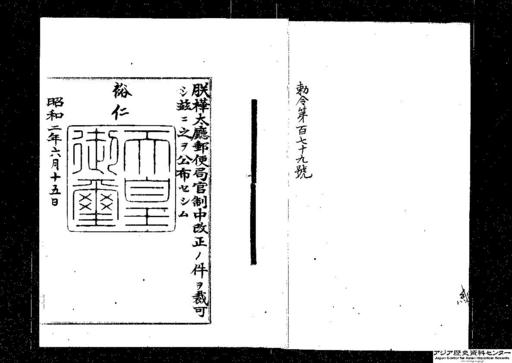 勅令第百七十九號
朕樺太廳郵便局官制中改正ノ件ヲ裁可
シ茲ニ之ヲ公布セシム
裕仁
天皇
御璽
昭和二年六月十五日
アジア歴史資料センター
Japan Center for Asian Historical Records